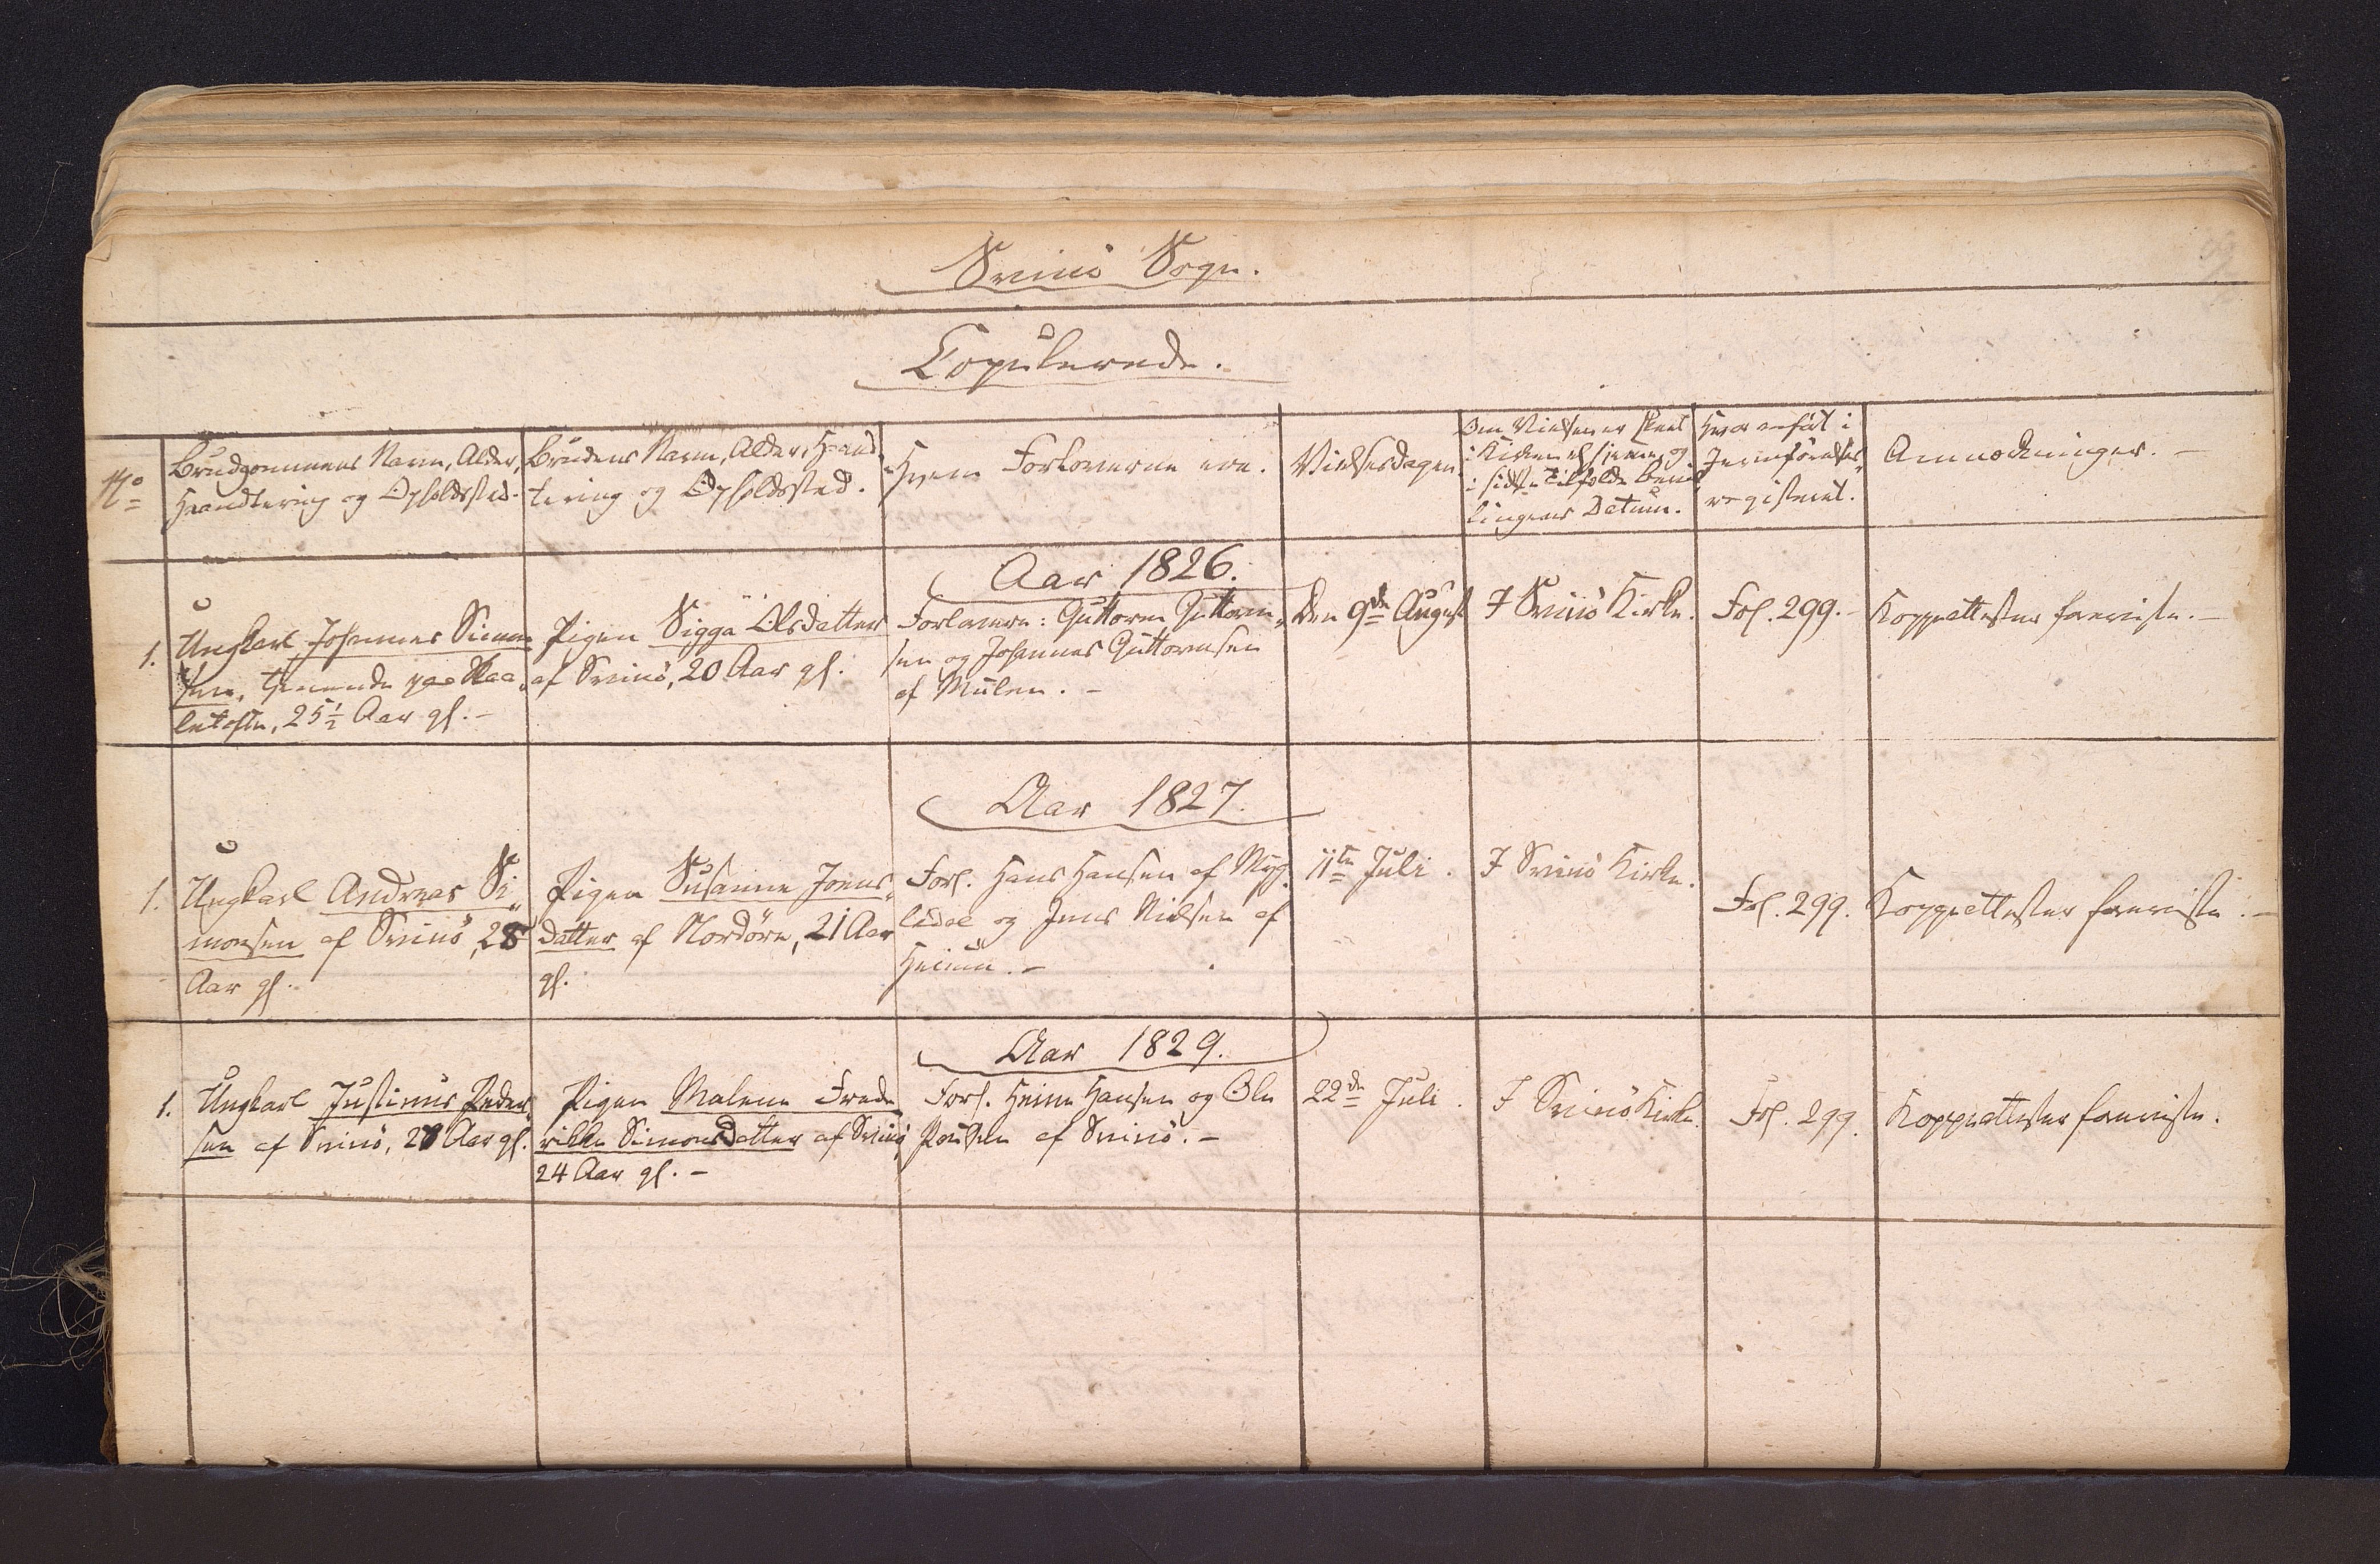 Svinö Sogn.
Copulerede.
No
Brudgommens Navn, Alder,
Haandtering og Opholdssted.
Brudens Navn, Alder, Haand-
tering og Opholdssted.
Hvem Forloverne ere.
Vielsesdagen
Om Vielsen er skeet
i Kirken el. hjemme, og
i sidste Tilfælde Bevil-
lingens Datum.
Hvor anført i
Jevnførelses
registeret.
Anmærkninger. -
Aar 1826.
1.
Ungkarl Johannes Simon
sen, tjenende paa Skaa-
letofte, 25½ Aar gl. -
Pigen Sigga Olsdatter
af Svinö, 20 Aar gl.
Forlovere: Guttorm Guttorm-
sen og Johannes Guttormsen
af Mulen. -
Den 9de August
I Svinö Kirke.
Fol. 299. -
Koppeattester foreviste. -
Aar 1827.
1.
Ungkarl Andreas Si-
monsen af Svinö, 28
Aar gl.
Pigen Susanne Joens-
datter af Nordöre, 21 Aar
gl.
Forl. Hans Hansen af Myg-
ledal og Jens Nielsen af
11te Juli.
I Svinö Kirke.
Fol. 299.
Koppeattester foreviste. -
Aar 1829.
1.
Ungkarl Justinus Peder-
sen af Svinö, 28 Aar gl.
Pigen Malene Frede
rikke Simonsdatter af Svinö
24 Aar gl. -
Forl. Heine Hansen og Ole
Poulsen af Svinö. -
22de Juli.
I Svinö Kirke.
Fol. 299.
Koppeattester foreviste.